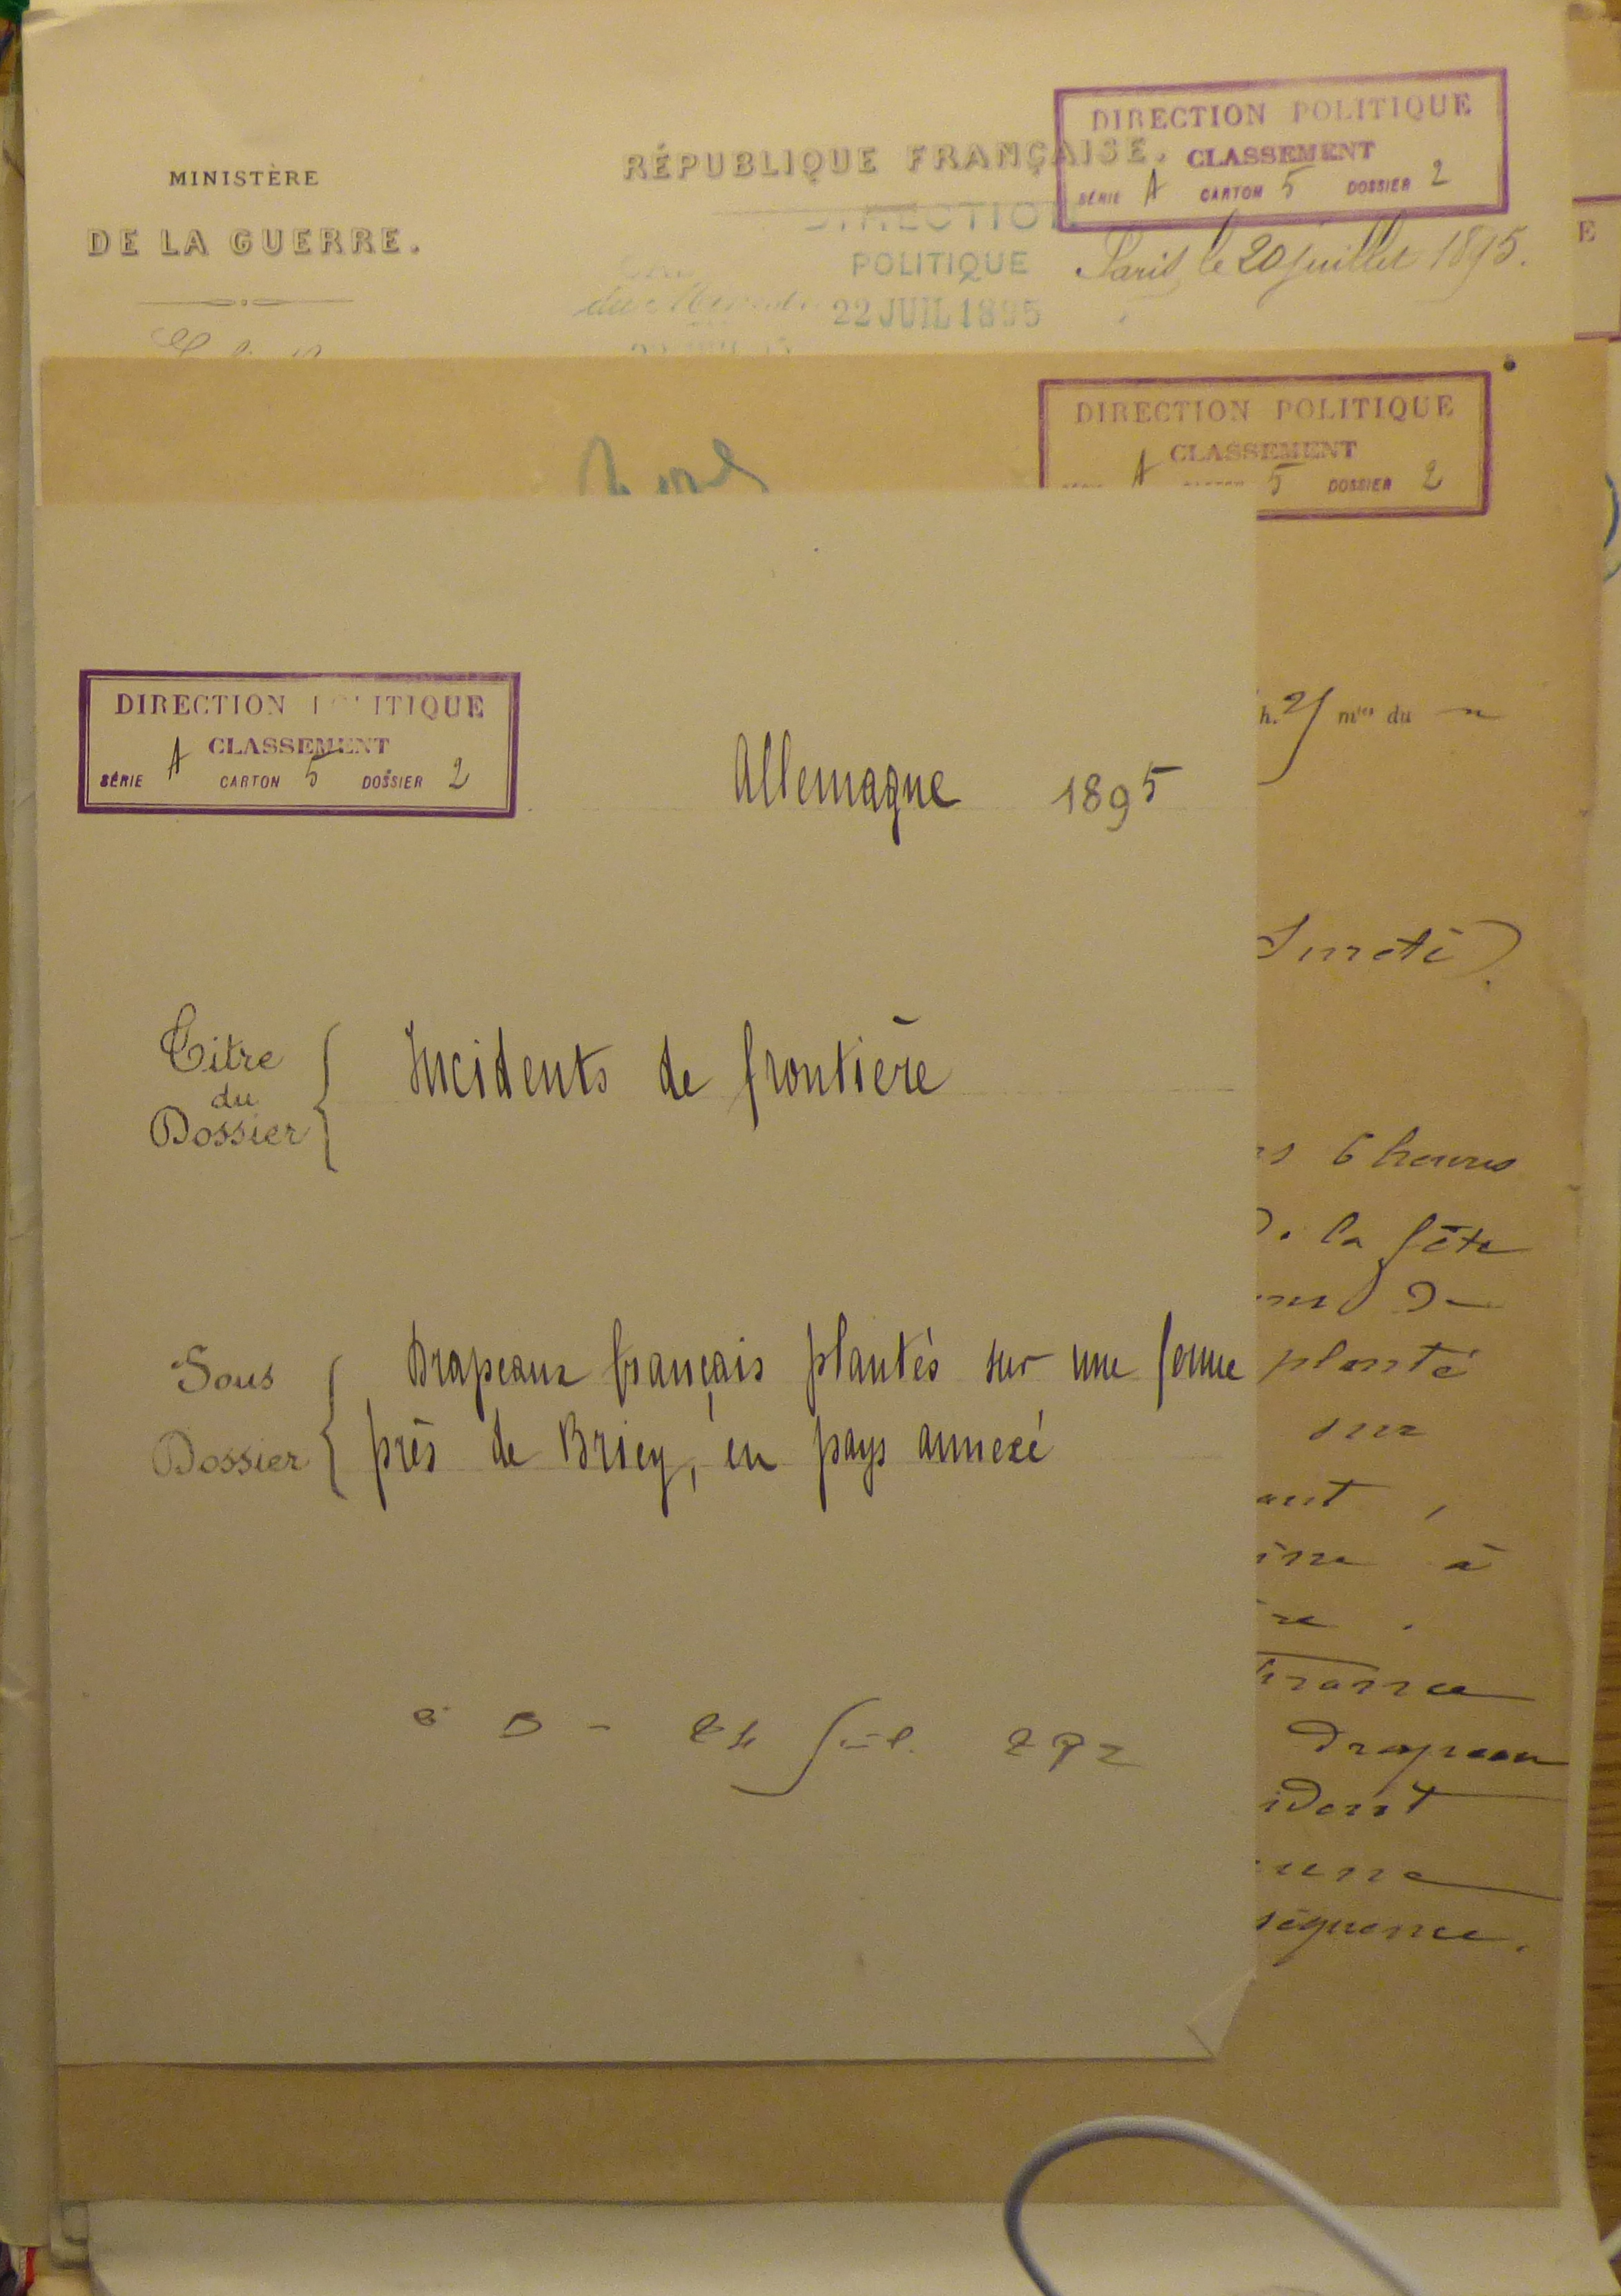 MINISTÈRE
DE LA GUERRE.
RÉPUBLIQUE FRANÇAISE.
DIRECTION POLITIQUE
CLASSEMENT
SÉRIE A CARTON 5 DOSSIER 2
DIRECTION
POLITIQUE
22 JUIL 1895
Paris, le 20 juillet 1895.
E
DIRECTION POLITIQUE
CLASSEMENT
A 5 DOSSIER 2
DIRECTION POLITIQUE
CLASSEMENT
SÉRIE A CARTON 5 DOSSIER 2
Allemagne 1895
Titre
du
Dossier
Incidents de frontière
Sous
Dossier
Drapeaux français plantés sur une ferme
près de Briey, en pays annexé
h. mtes du
Sureté).
6 heures
la fête
planté
sur
ant,
à
France
drapeau
ident
une
séquence.